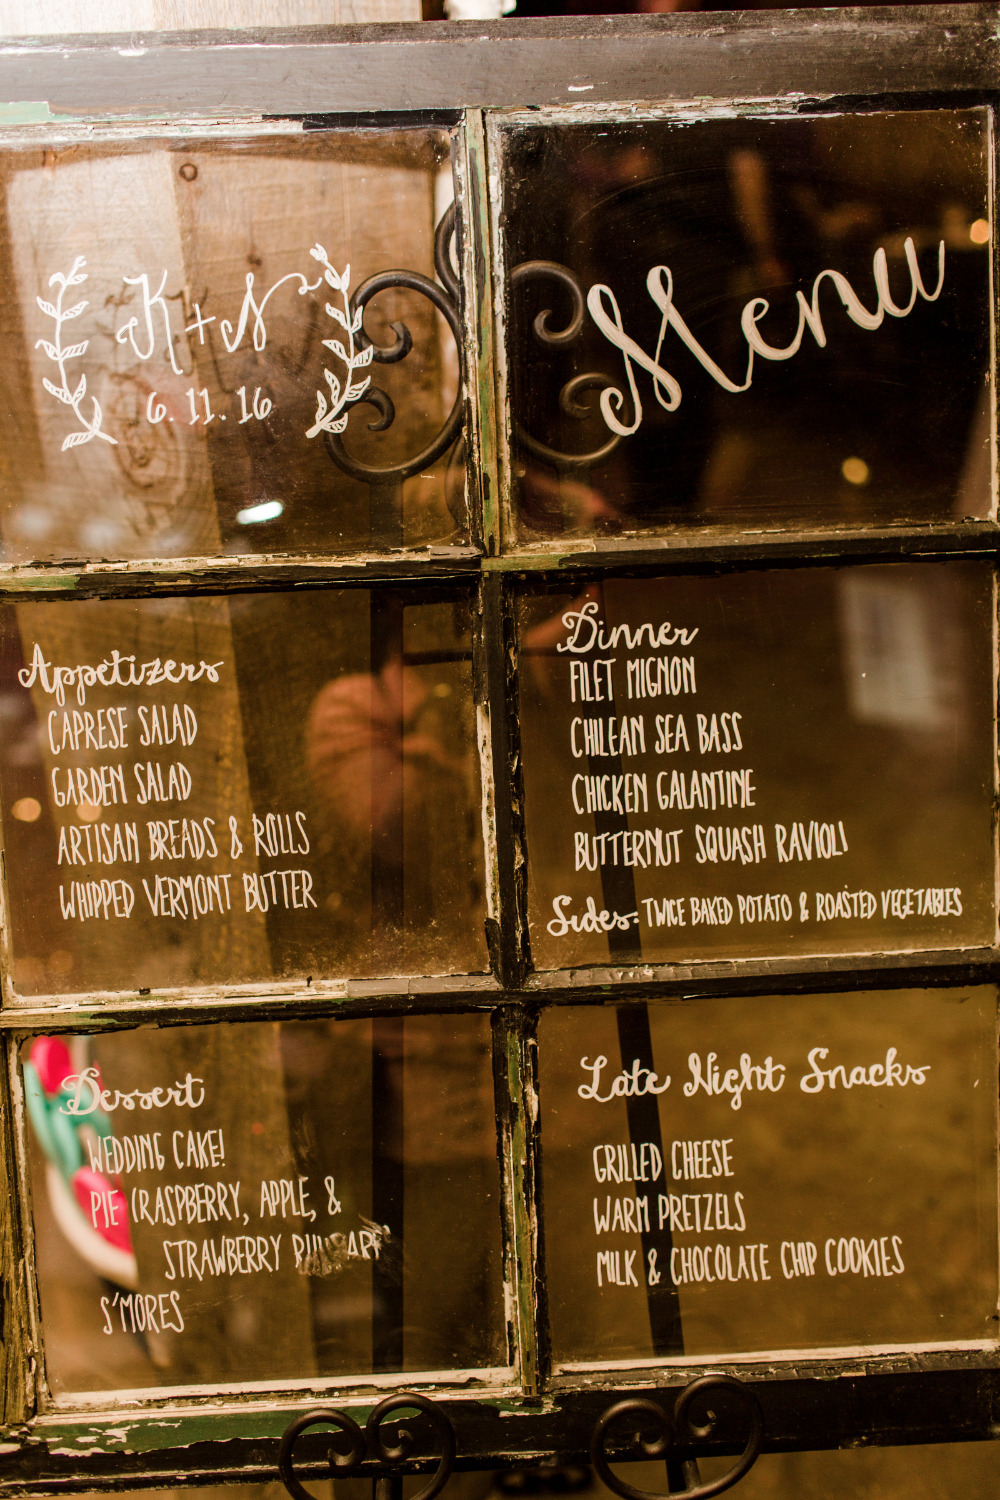 K + N
6. 11. 16
Menu
Appetizers
CAPRESE SALAD
GARDEN SALAD
ARTISAN BREADS & ROLLS
WHIPPED VERMONT BUTTER
Dinner
FILET MIGNON
CHILEAN SEA BASS
CHICKEN GALANTINE
BUTTERNUT SQUASH RAVIOLI
Sides: TWICE BAKED POTATO & ROASTED VEGETABLES
Dessert
WEDDING CAKE!
PIE (RASPBERRY, APPLE, &
STRAWBERRY
S'MORES
Late Night Snacks
GRILLED CHEESE
WARM PRETZELS
MILK & CHOCOLATE CHIP COOKIES